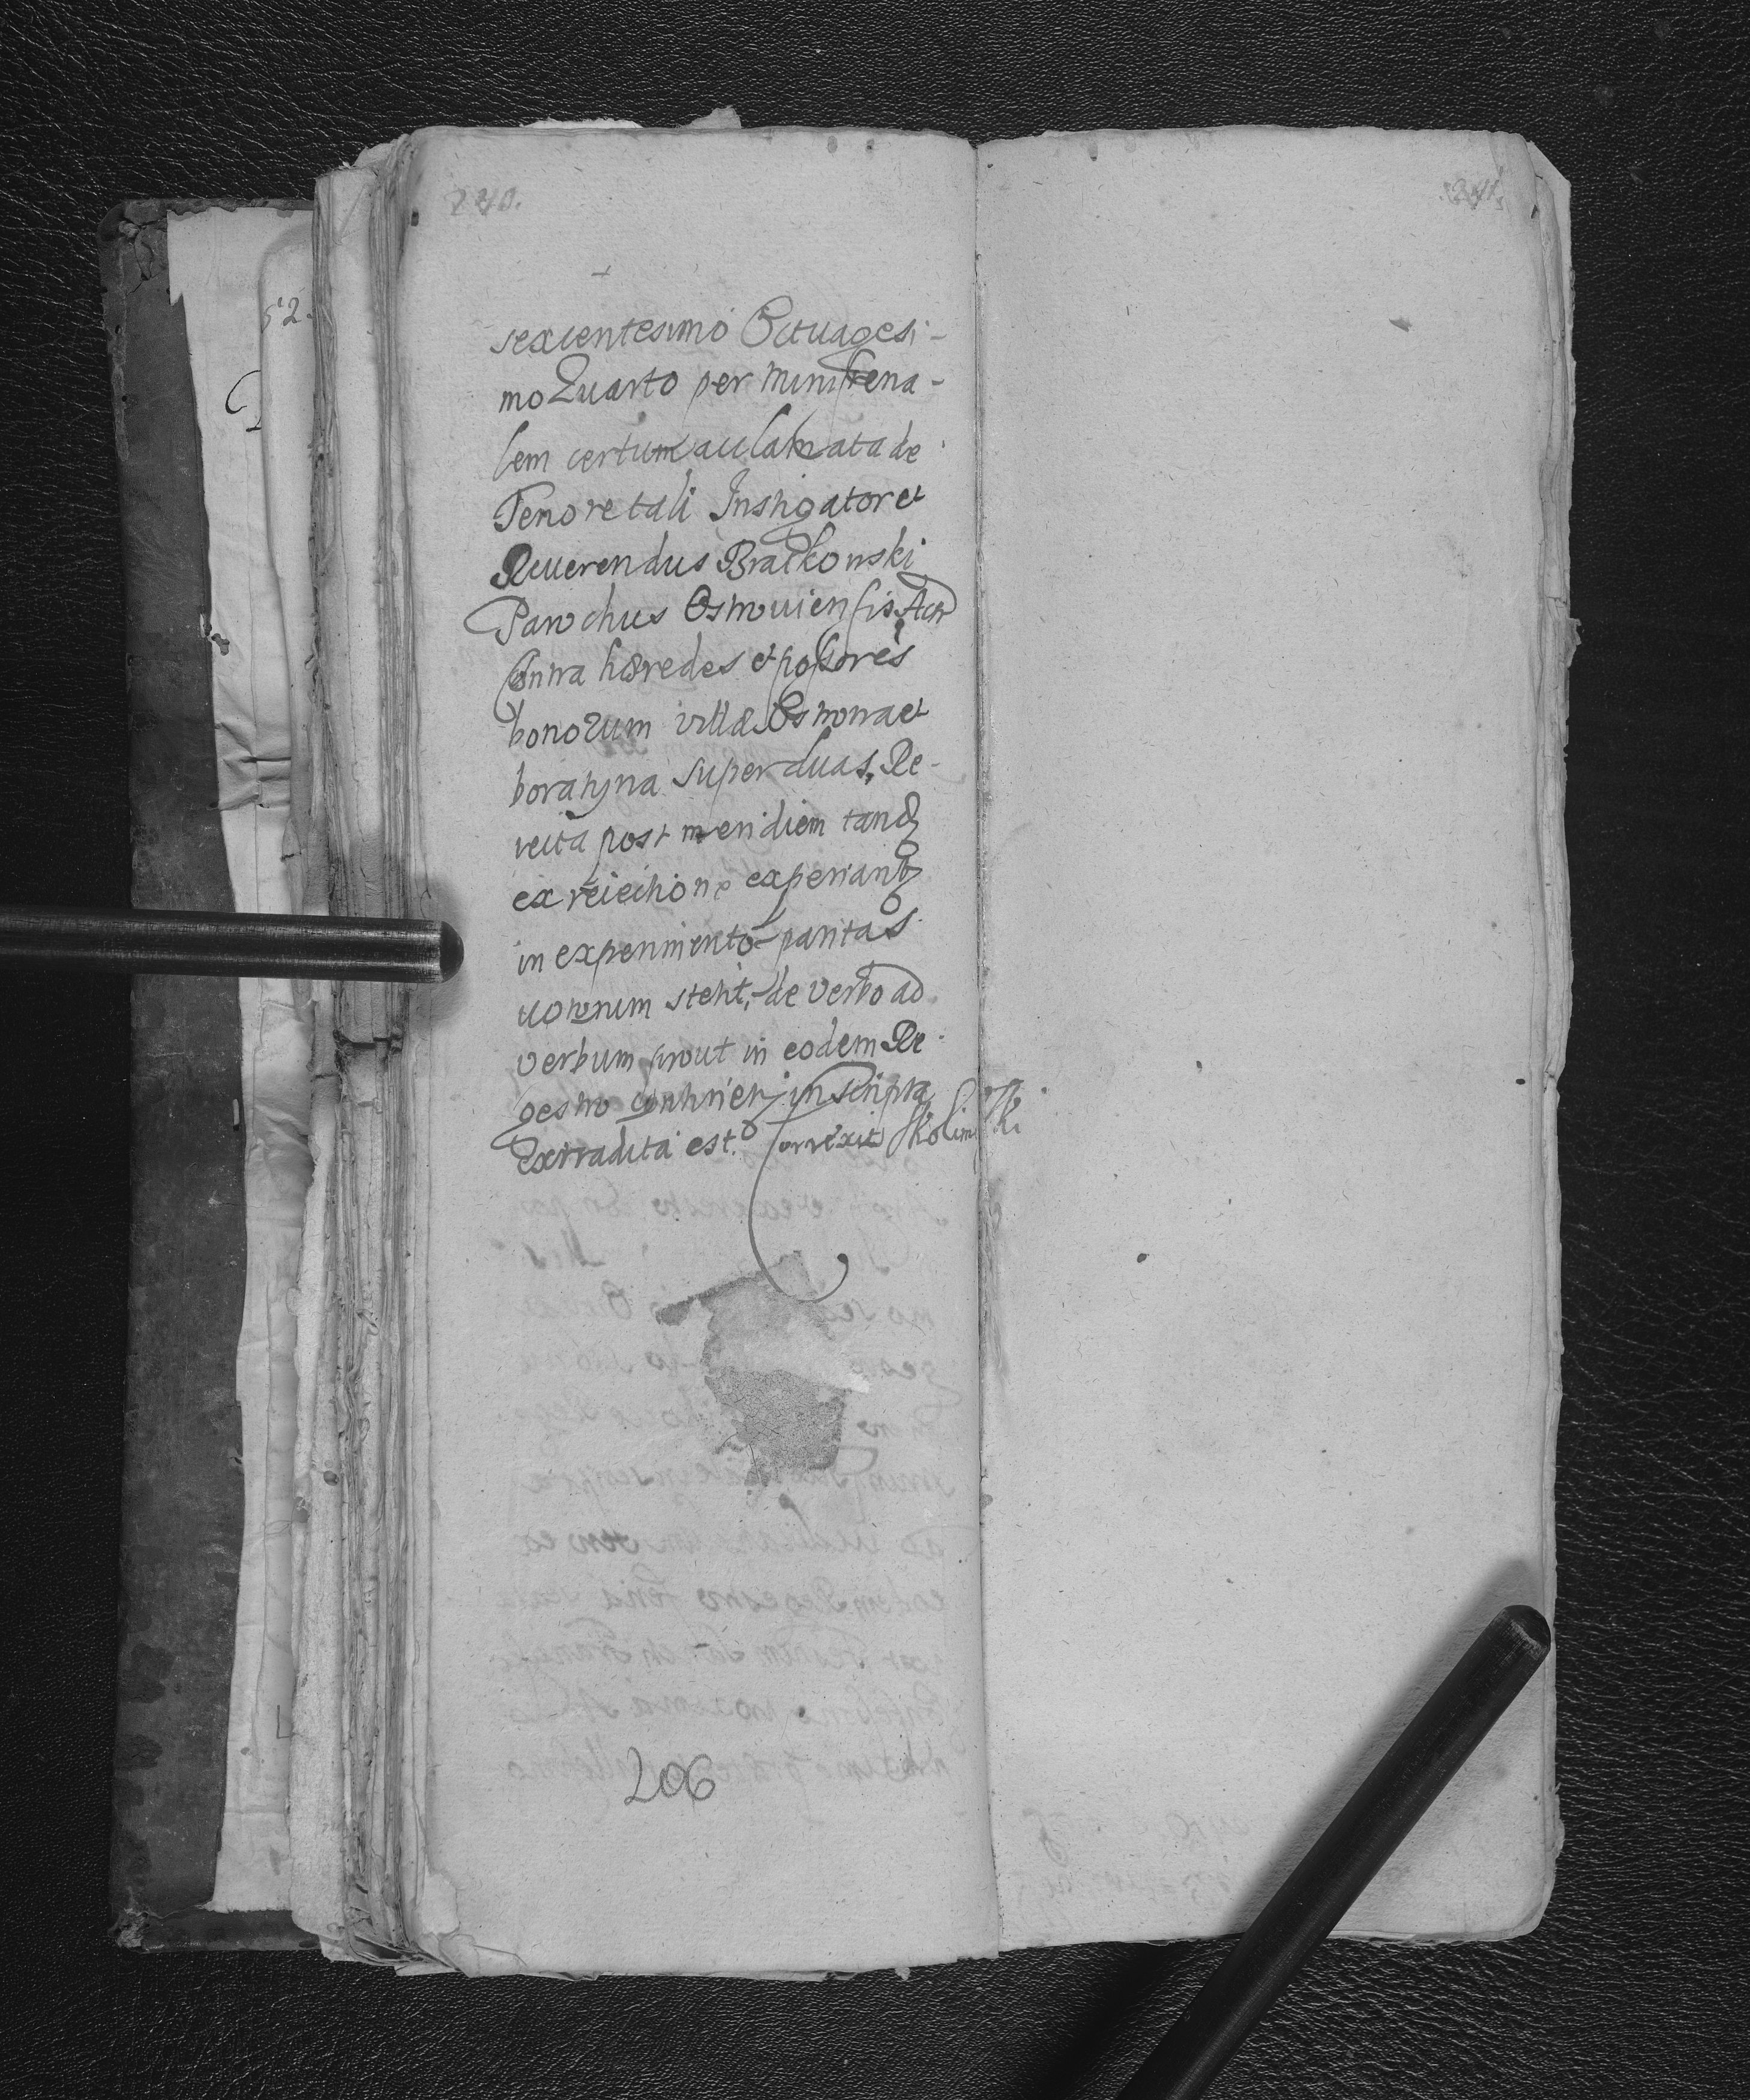 240.
241.
52.
sexcentesimo Octuagesi-
mo Quarto per ministeria-
lem certum acclamata de
Tenore tali Instigator et
Reuerendus Bratkowski
Parochus Ostrouiensis Actor
Contra hæredes et possores
bonorum villæ Ostrowa et
boratyna super duas, Re-
iecta post meridiem tandẽ
ex reiectione experiantʒ
in experimento paritas
uotorum stetit, de verbo ad
verbum prout in eodem Re-
gestro continetʒ inscripta
Extradita est. Correxit Skolimowski
206